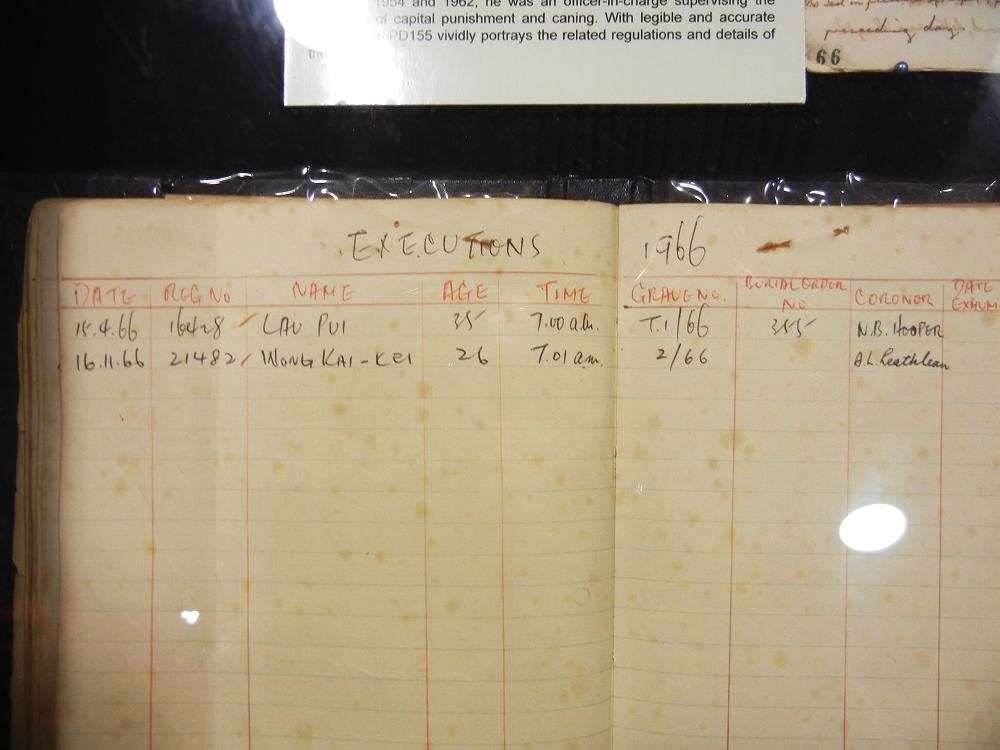 1954 and 1962, he was an officer-in-charge supervising the
of capital punishment and caning. With legible and accurate
PD155 vividly portrays the related regulations and details of
preceding days
66
EXECUTIONS 1966
DATE REG No NAME AGE TIME GRAVE NO. BURIAL ORDER NO CORONER DATE EXHUM
15.4.66 16428 LAU PUI 35 7.00 a.m. T.1/66 355 N.B. HOOPER
16.11.66 21482 WONG KAI-KEI 26 7.01 a.m. 2/66 A.L. Leathlean